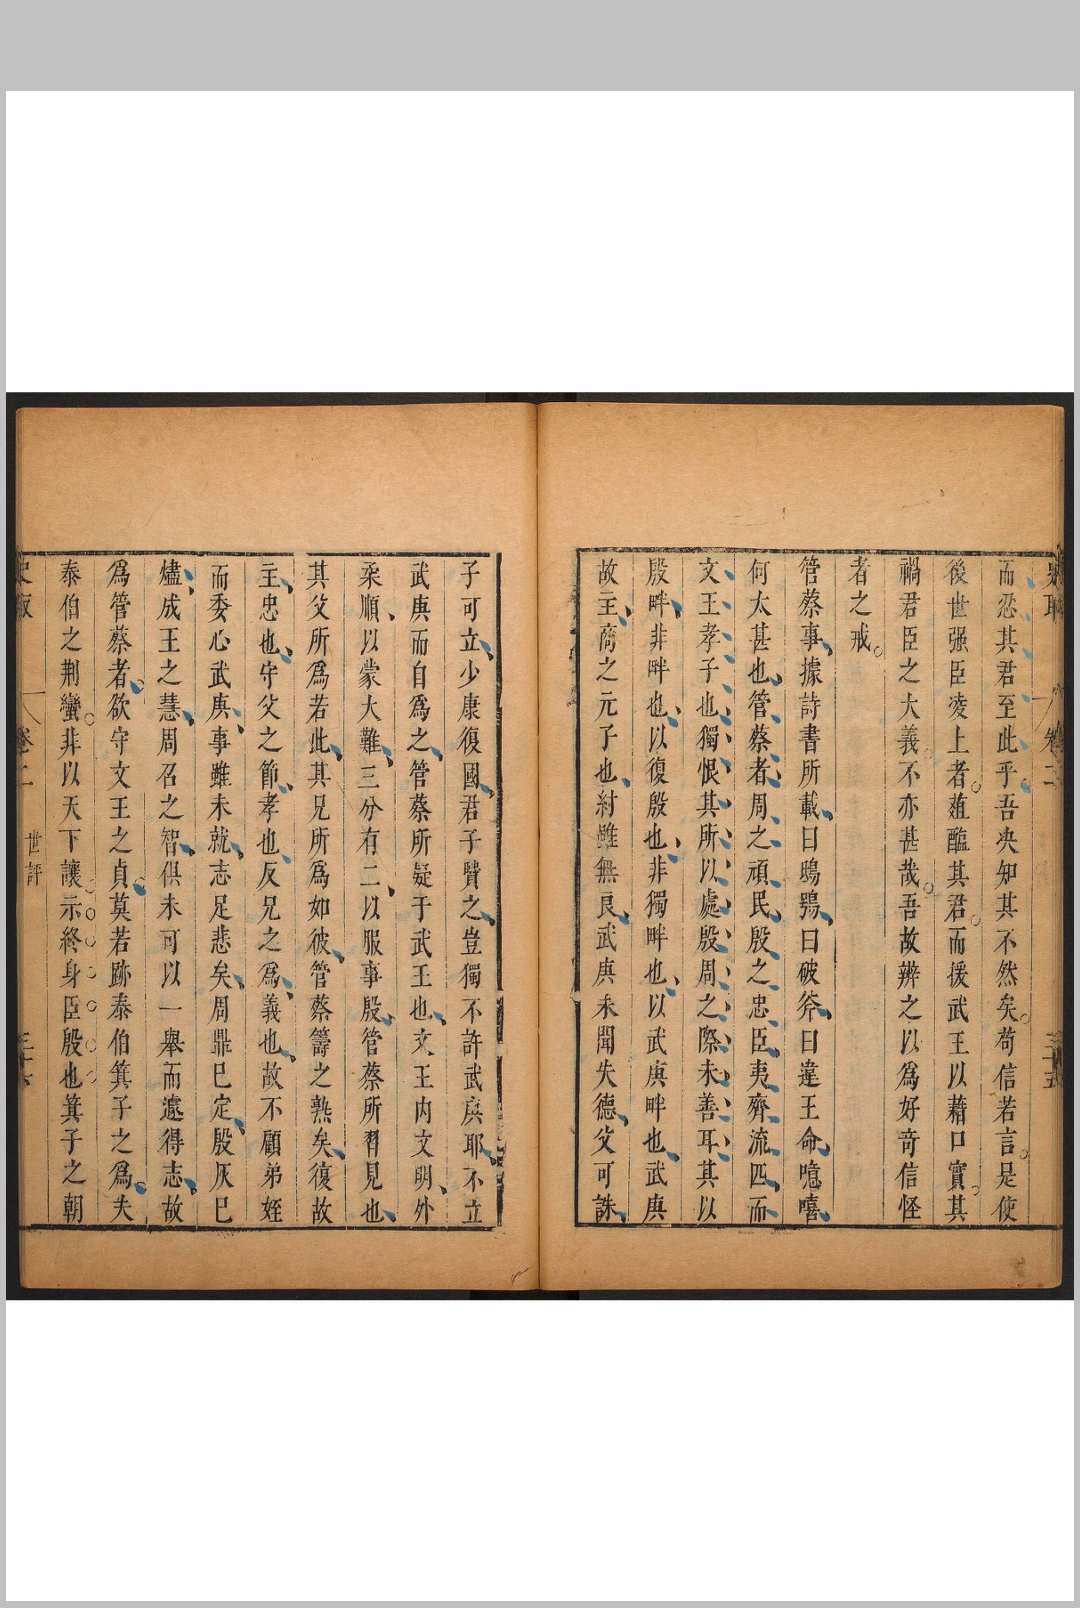 而忍其君至此乎吾决知其不然矣苟信若言是使
後世强臣凌上者葅醢其君而援武王以藉口實其
禍君臣之大義不亦甚哉吾故辨之以爲好奇信怪
者之戒
管蔡事據詩書所載曰鴟鴞曰破斧曰違王命噫嘻
何太甚也管蔡者周之頑民殷之忠臣夷齊流匹而
文王孝子也獨恨其所以處殷周之際未善耳其以
殷畔非畔也以復殷也非獨畔也以武庚畔也武庚
故主商之元子也紂雖無良武庚未聞失德父可誅
子可立少康復國君子賢之豈獨不許武庚耶不立
武庚而自爲之管蔡所疑于武王也文王内文明外
柔順以蒙大難三分有二以服事殷管蔡所習見也
其父所爲若此其兄所爲如彼管蔡籌之熟矣復故
主忠也守父之節孝也反兄之爲義也故不顧弟姪
而委心武庚事雖未就志足悲矣周鼎已定殷灰已
燼成王之慧周召之智俱未可以一舉而遽得志故
爲管蔡者欲守文王之貞莫若跡泰伯箕子之爲夫
泰伯之荆蠻非以天下讓示終身臣殷也箕子之朝
卷二
世評
三十六